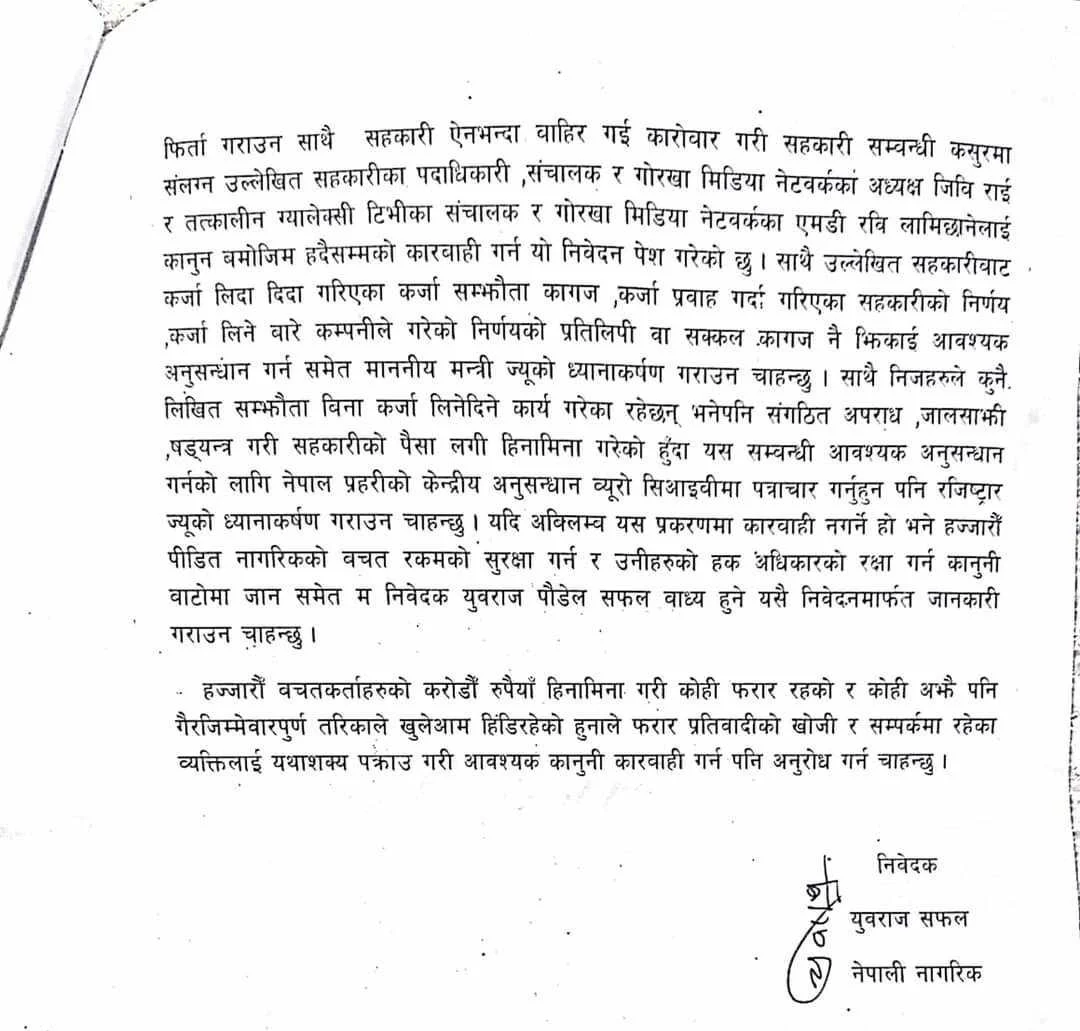 फिर्ता गराउन साथै सहकारी ऐनभन्दा वाहिर गई कारोवार गरी सहकारी सम्वन्धी कसुरमा
संलग्न उल्लेखित सहकारीका पदाधिकारी ,संचालक र गोरखा मिडिया नेटवर्कका अध्यक्ष जिवि राई
र तत्कालीन ग्यालेक्सी टिभीका संचालक र गोरखा मिडिया नेटवर्कका एमडी रवि लामिछानेलाई
कानुन वमोजिम हदैसम्मको कारवाही गर्न यो निवेदन पेश गरेको छु । साथै उल्लेखित सहकारीवाट
कर्जा लिदा दिदा गरिएका कर्जा सम्झौता कागज ,कर्जा प्रवाह गर्दा गरिएका सहकारीको निर्णय
,कर्जा लिने वारे कम्पनीले गरेको निर्णयको प्रतिलिपी वा सक्कल कागज नै झिकाई आवश्यक
अनुसन्धान गर्न समेत माननीय मन्त्री ज्यूको ध्यानाकर्षण गराउन चाहन्छु । साथै निजहरुले कुनै
लिखित सम्झौता विना कर्जा लिनेदिने कार्य गरेका रहेछन् भनेपनि संगठित अपराध ,जालसाझी
,षड्यन्त्र गरी सहकारीको पैसा लगी हिनामिना गरेको हुँदा यस सम्वन्धी आवश्यक अनुसन्धान
गर्नको लागि नेपाल प्रहरीको केन्द्रीय अनुसन्धान व्यूरो सिआइवीमा पत्राचार गर्नुहुन पनि रजिष्ट्रार
ज्यूको ध्यानाकर्षण गराउन चाहन्छु । यदि अविलम्व यस प्रकरणमा कारवाही नगर्ने हो भने हज्जारौँ
पीडित नागरिकको वचत रकमको सुरक्षा गर्न र उनीहरुको हक अधिकारको रक्षा गर्न कानुनी
वाटोमा जान समेत म निवेदक युवराज पौडेल सफल वाध्य हुने यसै निवेदनमार्फत जानकारी
गराउन चाहन्छु ।
हज्जारौँ वचतकर्ताहरुको करोडौँ रुपैयाँ हिनामिना गरी कोही फरार रहको र कोही अझै पनि
गैरजिम्मेवारपुर्ण तरिकाले खुलेआम हिंडिरहेको हुनाले फरार प्रतिवादीको खोजी र सम्पर्कमा रहेका
व्यक्तिलाई यथाशक्य पक्राउ गरी आवश्यक कानुनी कारवाही गर्न पनि अनुरोध गर्न चाहन्छु ।
निवेदक
युवराज सफल
नेपाली नागरिक